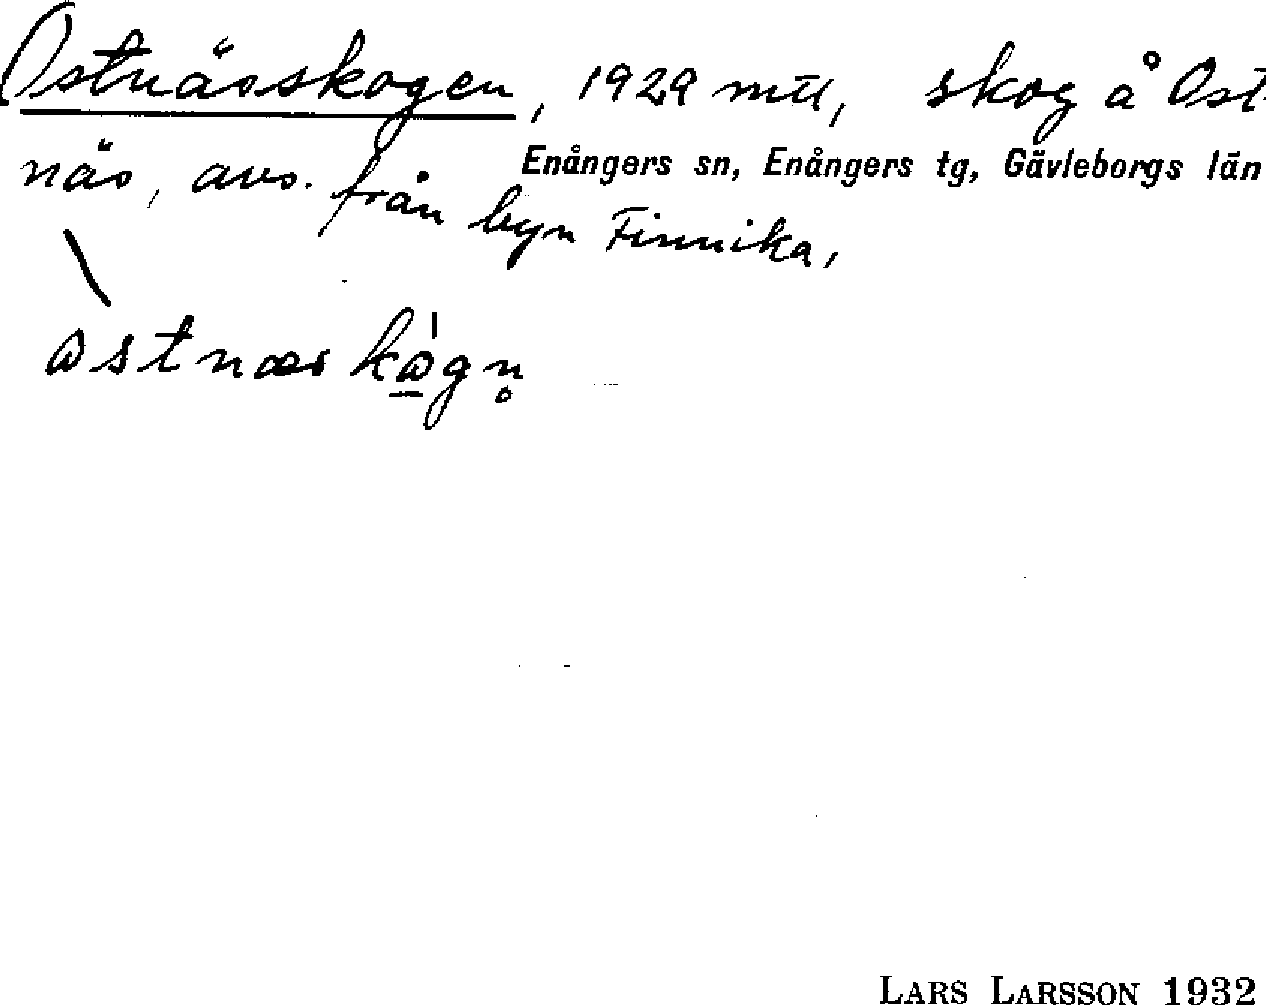 Ostnässkogen, 1929 mtl, skog å Ost-
näs, avs. från byn Finnika,
Enångers sn, Enångers tg, Gävleborgs län
LARS LARSSON 1932